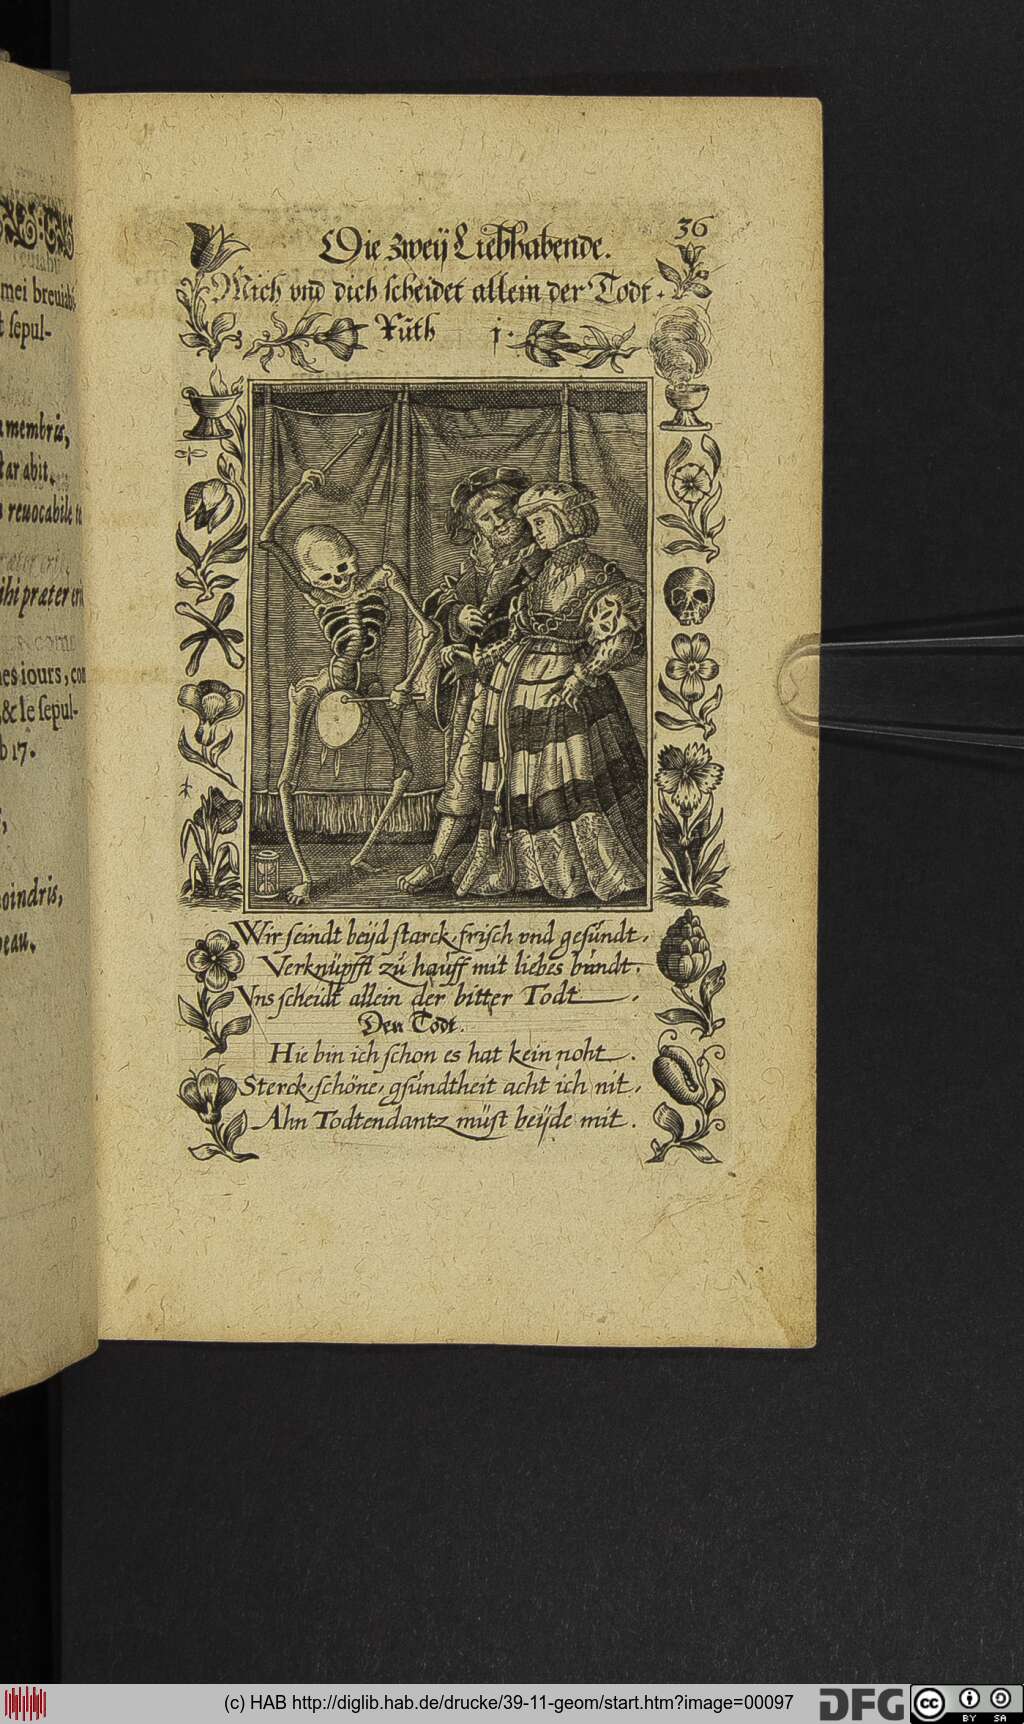 mei breuiabū
t ſepul-
membris,
tar abit,
reuocabile
ihi præter
es iours, con
& le ſepul-
b 17.
oindris,
beau.
36
Die zweÿ Liebhabende.
Mich vnd dich ſcheidet allein der Todt.
Rŭth 1.
Wir ſeindt beÿd ſtarck, friſch vnd geſŭndt.
Verknüpfft zŭ haŭff mit liebes bŭndt.
Vns ſcheidt allein der bitter Todt.
Den Todt.
Hie bin ich ſchon es hat kein noht.
Sterck, ſchöne, gſŭndtheit acht ich nit.
Ahn Todtendantz müſt beÿde mit.
(c) HAB http://diglib.hab.de/drucke/39-11-geom/start.htm?image=00097
DFG
cc BY SA